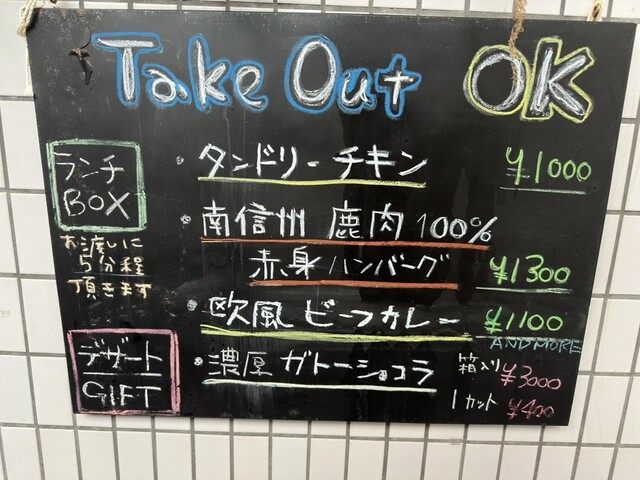 Take Out OK
ランチ
BOX
・タンドリーチキン ¥1000
・南信州 鹿肉 100%
赤身ハンバーグ ¥1300
お渡しに
5分程
頂きます
・欧風 ビーフカレー ¥1100
AND MORE
デザート
GIFT
・濃厚 ガトーショコラ 箱入り ¥3000
1カット ¥400